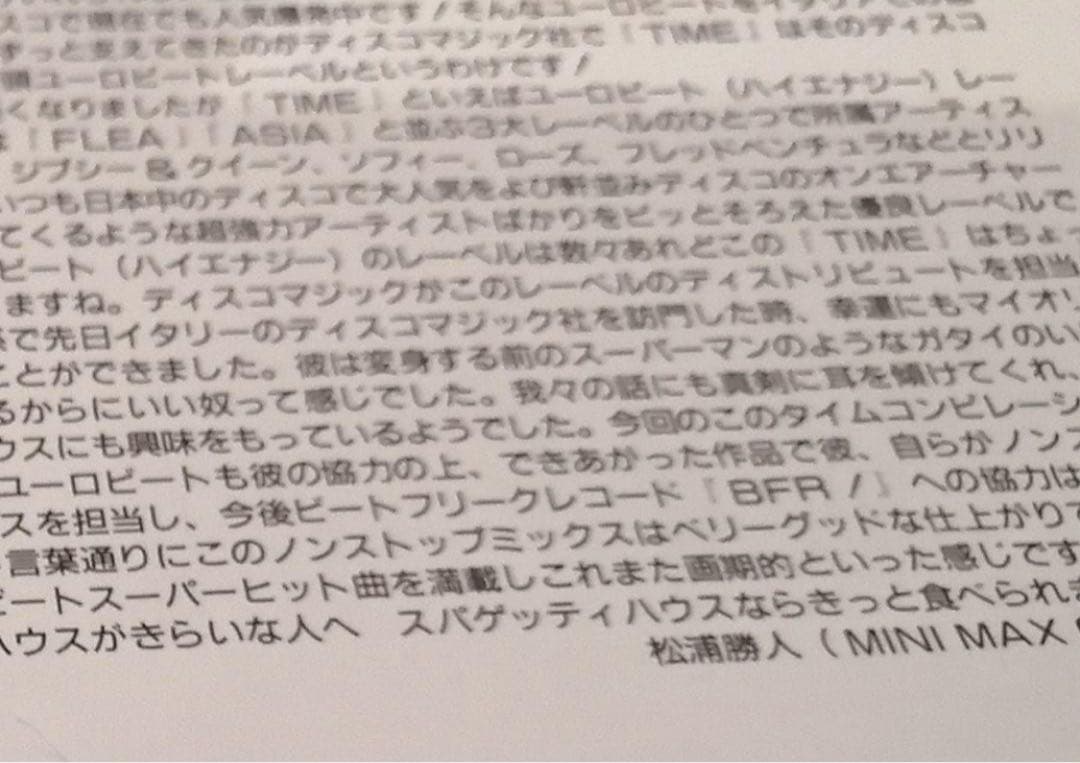 スコで現在でも人気爆発中です！そんなユーロビートをイタリアで
ずっと支えてきたのがディスコマジック社で「TIME」はそのディスコ
ユーロビートレーベルというわけです！
くなりましたが「TIME」といえばユーロビート（ハイエナジー）レー
「FLEA」「ASIA」と並ぶ3大レーベルのひとつで所属アーティス
ジプシー＆クイーン、ソフィー、ローズ、フレッドベンチュラなどとリリ
いつも日本中のディスコで大人気をよび軒並みディスコのオンエアーチャー
てくるような超強力アーティストばかりをピッとそろえた優良レーベルで
ビート（ハイエナジー）のレーベルは数々あれどこの「TIME」はちょっ
ますね。ディスコマジックがこのレーベルのディストリビュートを担当
で先日イタリーのディスコマジック社を訪門した時、幸運にもマイオリ
ことができました。彼は変身する前のスーパーマンのようなガタイのい
るからにいい奴って感じでした。我々の話にも真剣に耳を傾けてくれ、
ウスにも興味をもっているようでした。今回のこのタイムコンピレーシ
ユーロビートも彼の協力の上、できあがった作品で彼、自らがノンス
スを担当し、今後ビートフリークレコード「BFR！」への協力は
言葉通りにこのノンストップミックスはベリーグッドな仕上がりで
ビートスーパーヒット曲を満載しこれまた画期的といった感じです
ハウスがきらいな人へ　スパゲッティハウスならきっと食べられま
松浦勝人（MINI MAX